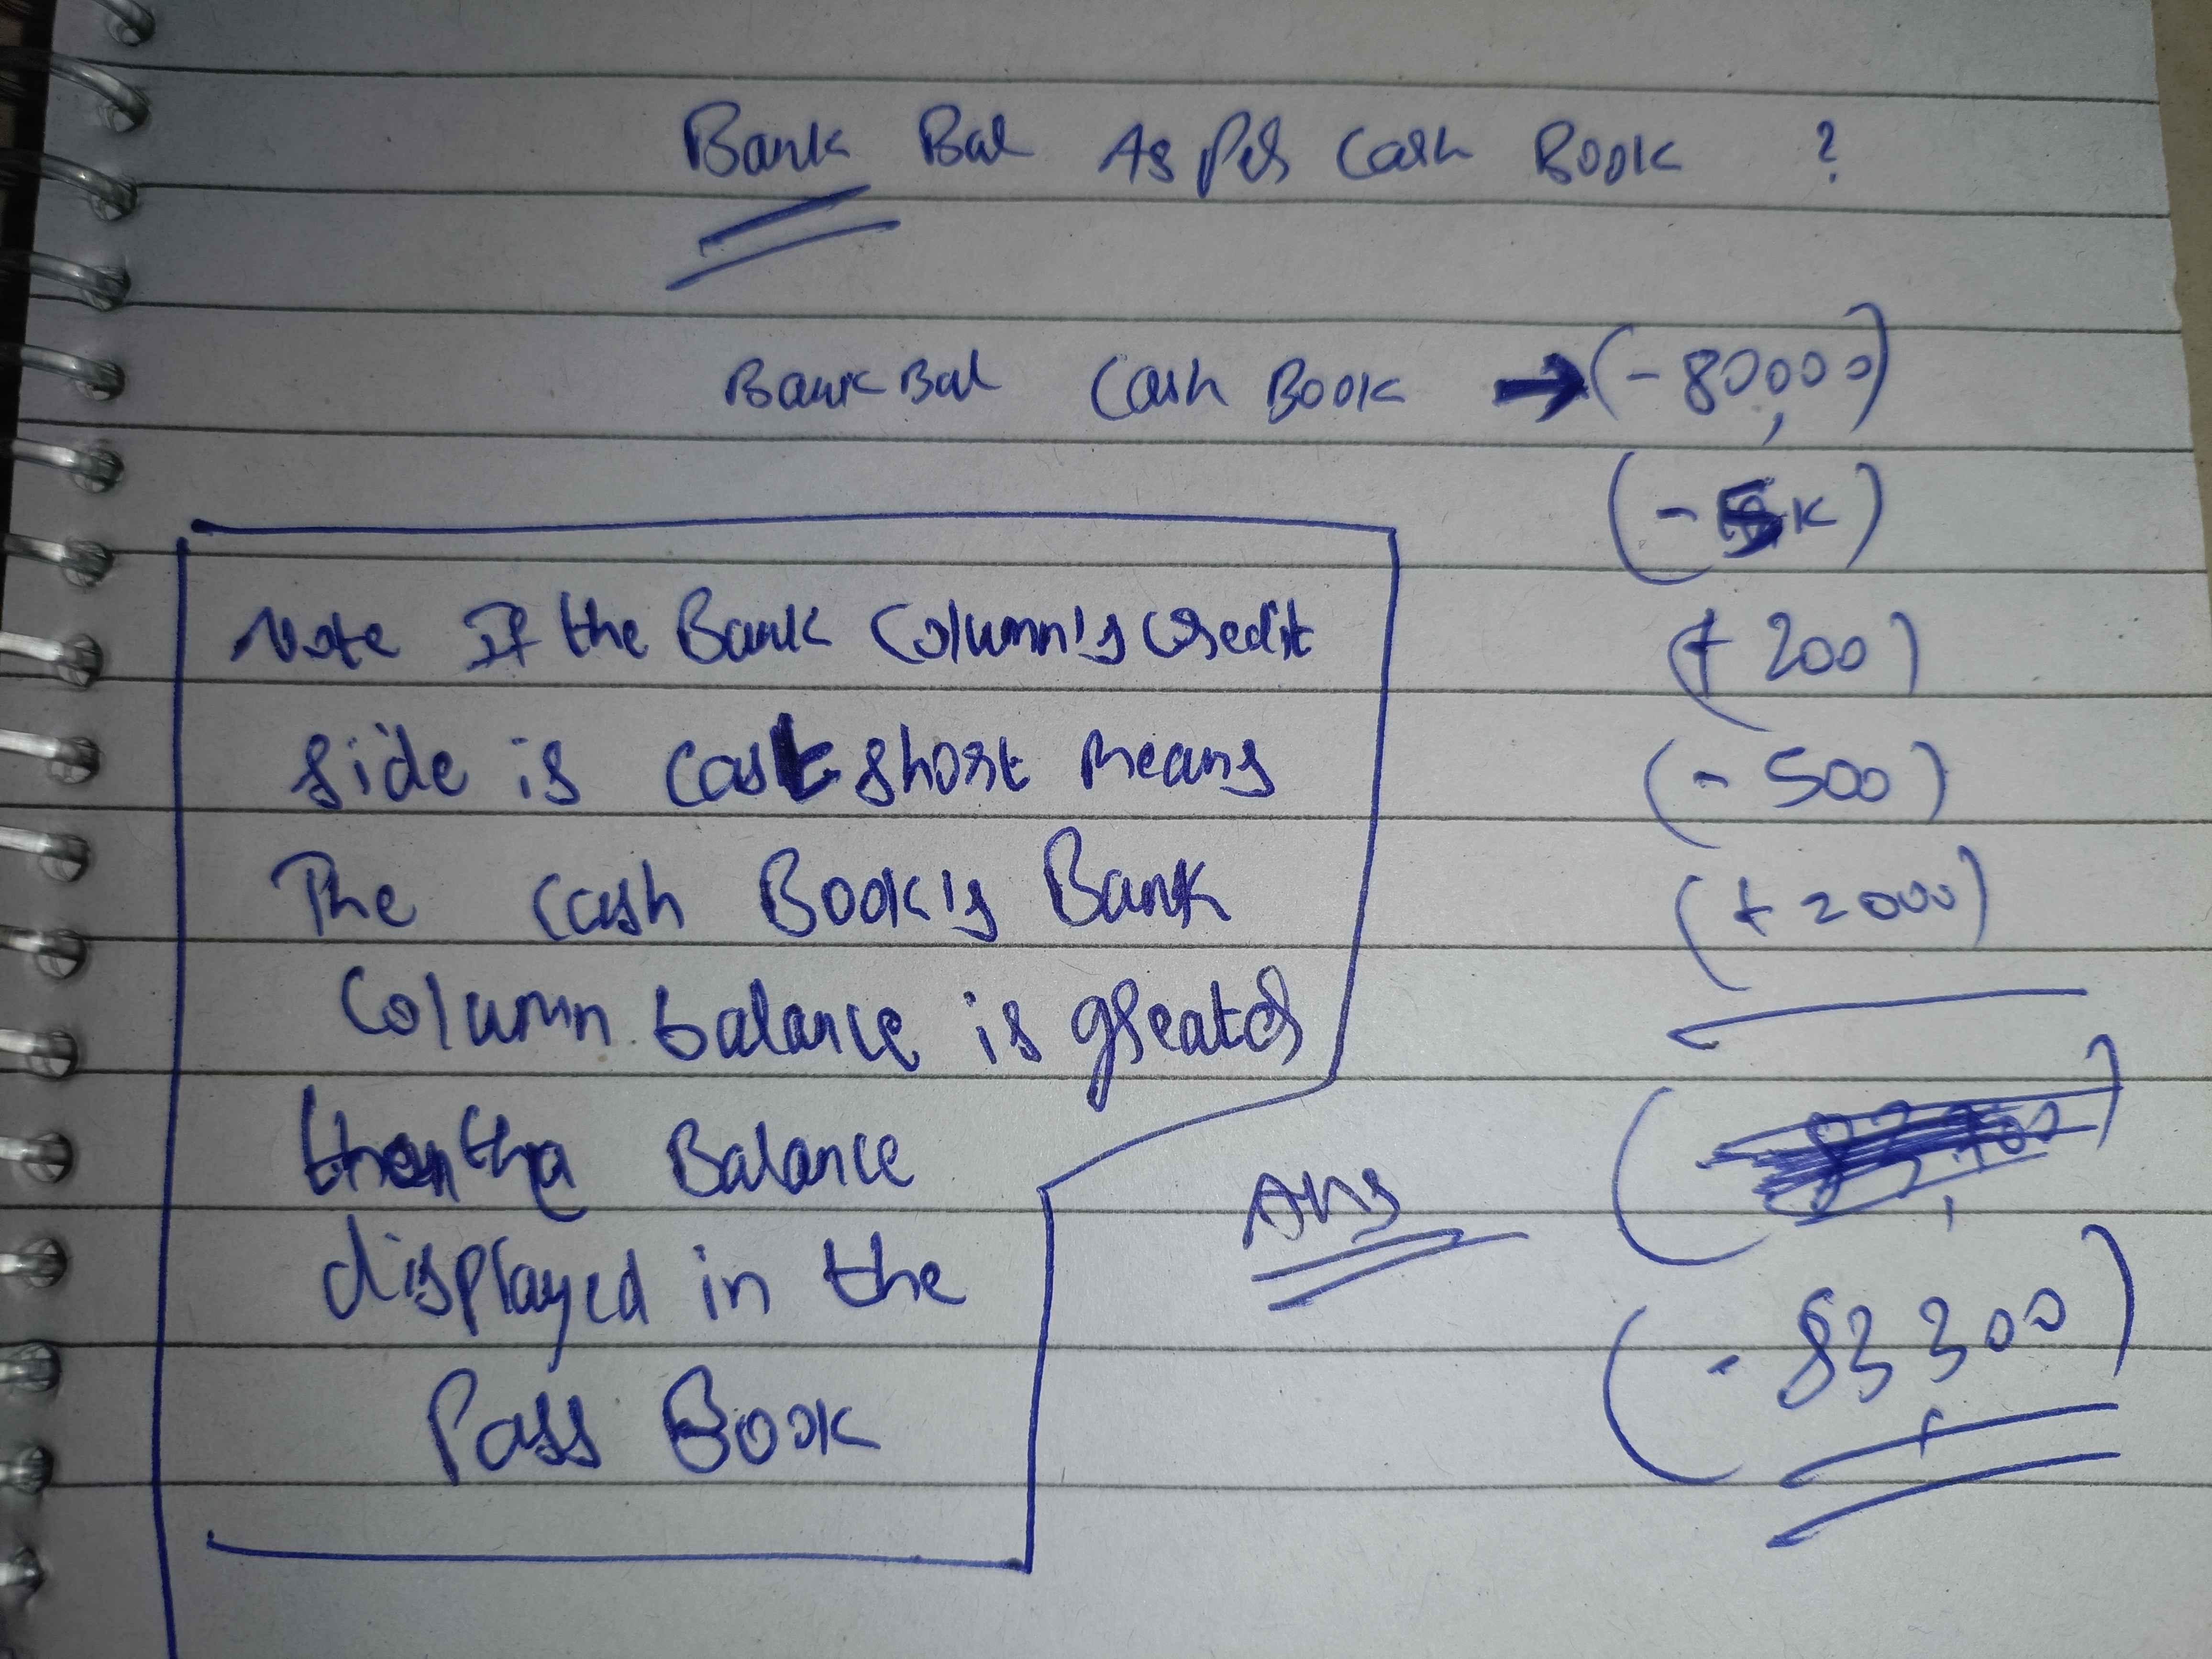 Bank Bal As Per Cash Book ?
Bank Bal Cash Book → (- 80,000)
(- 5K)
(+ 200)
(- 500)
(+ 2000)
Note If the Bank Column's Credit
side is cast short means
The cash Book's Bank
Column balance is greater
than the Balance
displayed in the
Pass Book
Ans
(- 83,300)